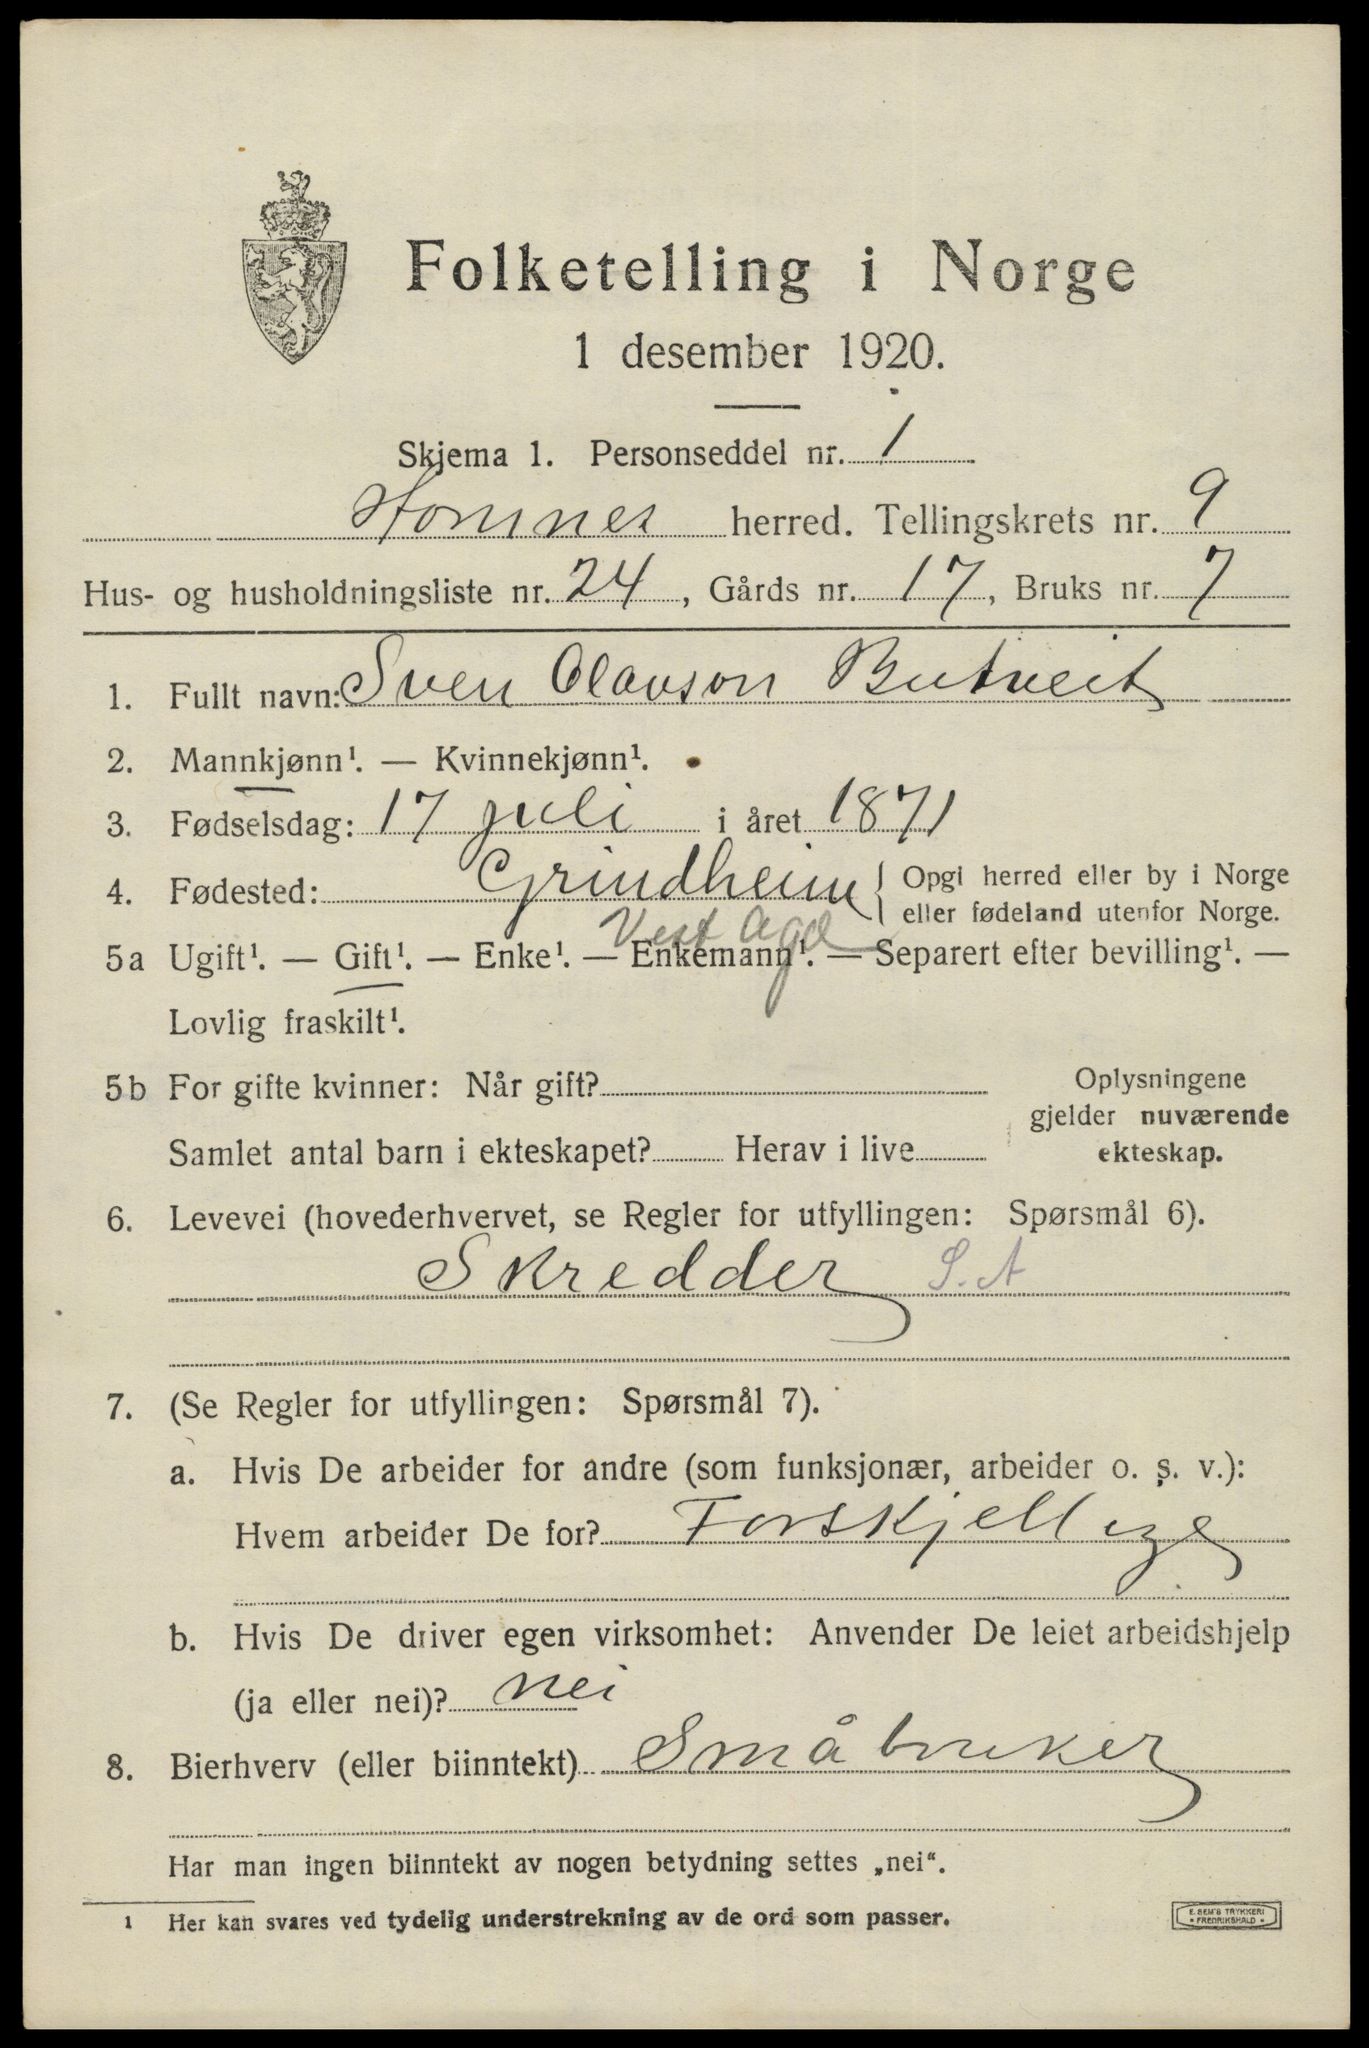 Folketelling i Norge
1 desember 1920.
Skjema 1. Personseddel nr. 1
Hornnes herred. Tellingskrets nr. 9
Hus- og husholdningsliste nr. 24, Gårds nr. 17, Bruks nr. 7
1. Fullt navn: Sven Olavson Butveit
2. Mannkjønn¹. — Kvinnekjønn¹.
3. Fødselsdag: 17 juli i året 1871
4. Fødested: Grindheim { Opgi herred eller by i Norge
eller fødeland utenfor Norge.
Vest Agd
5a Ugift¹. — Gift¹. — Enke¹. — Enkemann¹. — Separert efter bevilling¹. —
Lovlig fraskilt¹.
5b For gifte kvinner: Når gift?
Samlet antal barn i ekteskapet? Herav i live
Oplysningene
gjelder nuværende
ekteskap.
6. Levevei (hovederhvervet, se Regler for utfyllingen: Spørsmål 6).
Skredder S.A
7. (Se Regler for utfyllingen: Spørsmål 7).
a. Hvis De arbeider for andre (som funksjonær, arbeider o. s. v.):
Hvem arbeider De for? Forskjellige
b. Hvis De driver egen virksomhet: Anvender De leiet arbeidshjelp
(ja eller nei)? nei
8. Bierhverv (eller biinntekt) Småbruker
Har man ingen biinntekt av nogen betydning settes „nei“.
1 Her kan svares ved tydelig understrekning av de ord som passer.
E. SEM'S TRYKKERI
• FREDRIKSHALD •